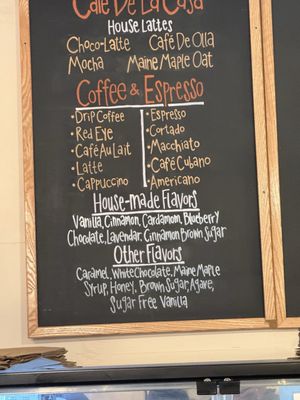 Café De La Casa
House Lattes
Choco-Latte Café De Olla
Mocha Maine Maple Oat
Coffee & Espresso
• Drip Coffee
• Red Eye
• Café Au Lait
• Latte
• Cappuccino
• Espresso
• Cortado
• Macchiato
• Café Cubano
• Americano
House-made Flavors
Vanilla, Cinnamon, Cardamom, Blueberry
Chocolate, Lavendar, Cinnamon Brown Sugar
Other Flavors
Caramel, White Chocolate, Maine Maple
Syrup, Honey, Brown Sugar, Agave,
Sugar Free Vanilla